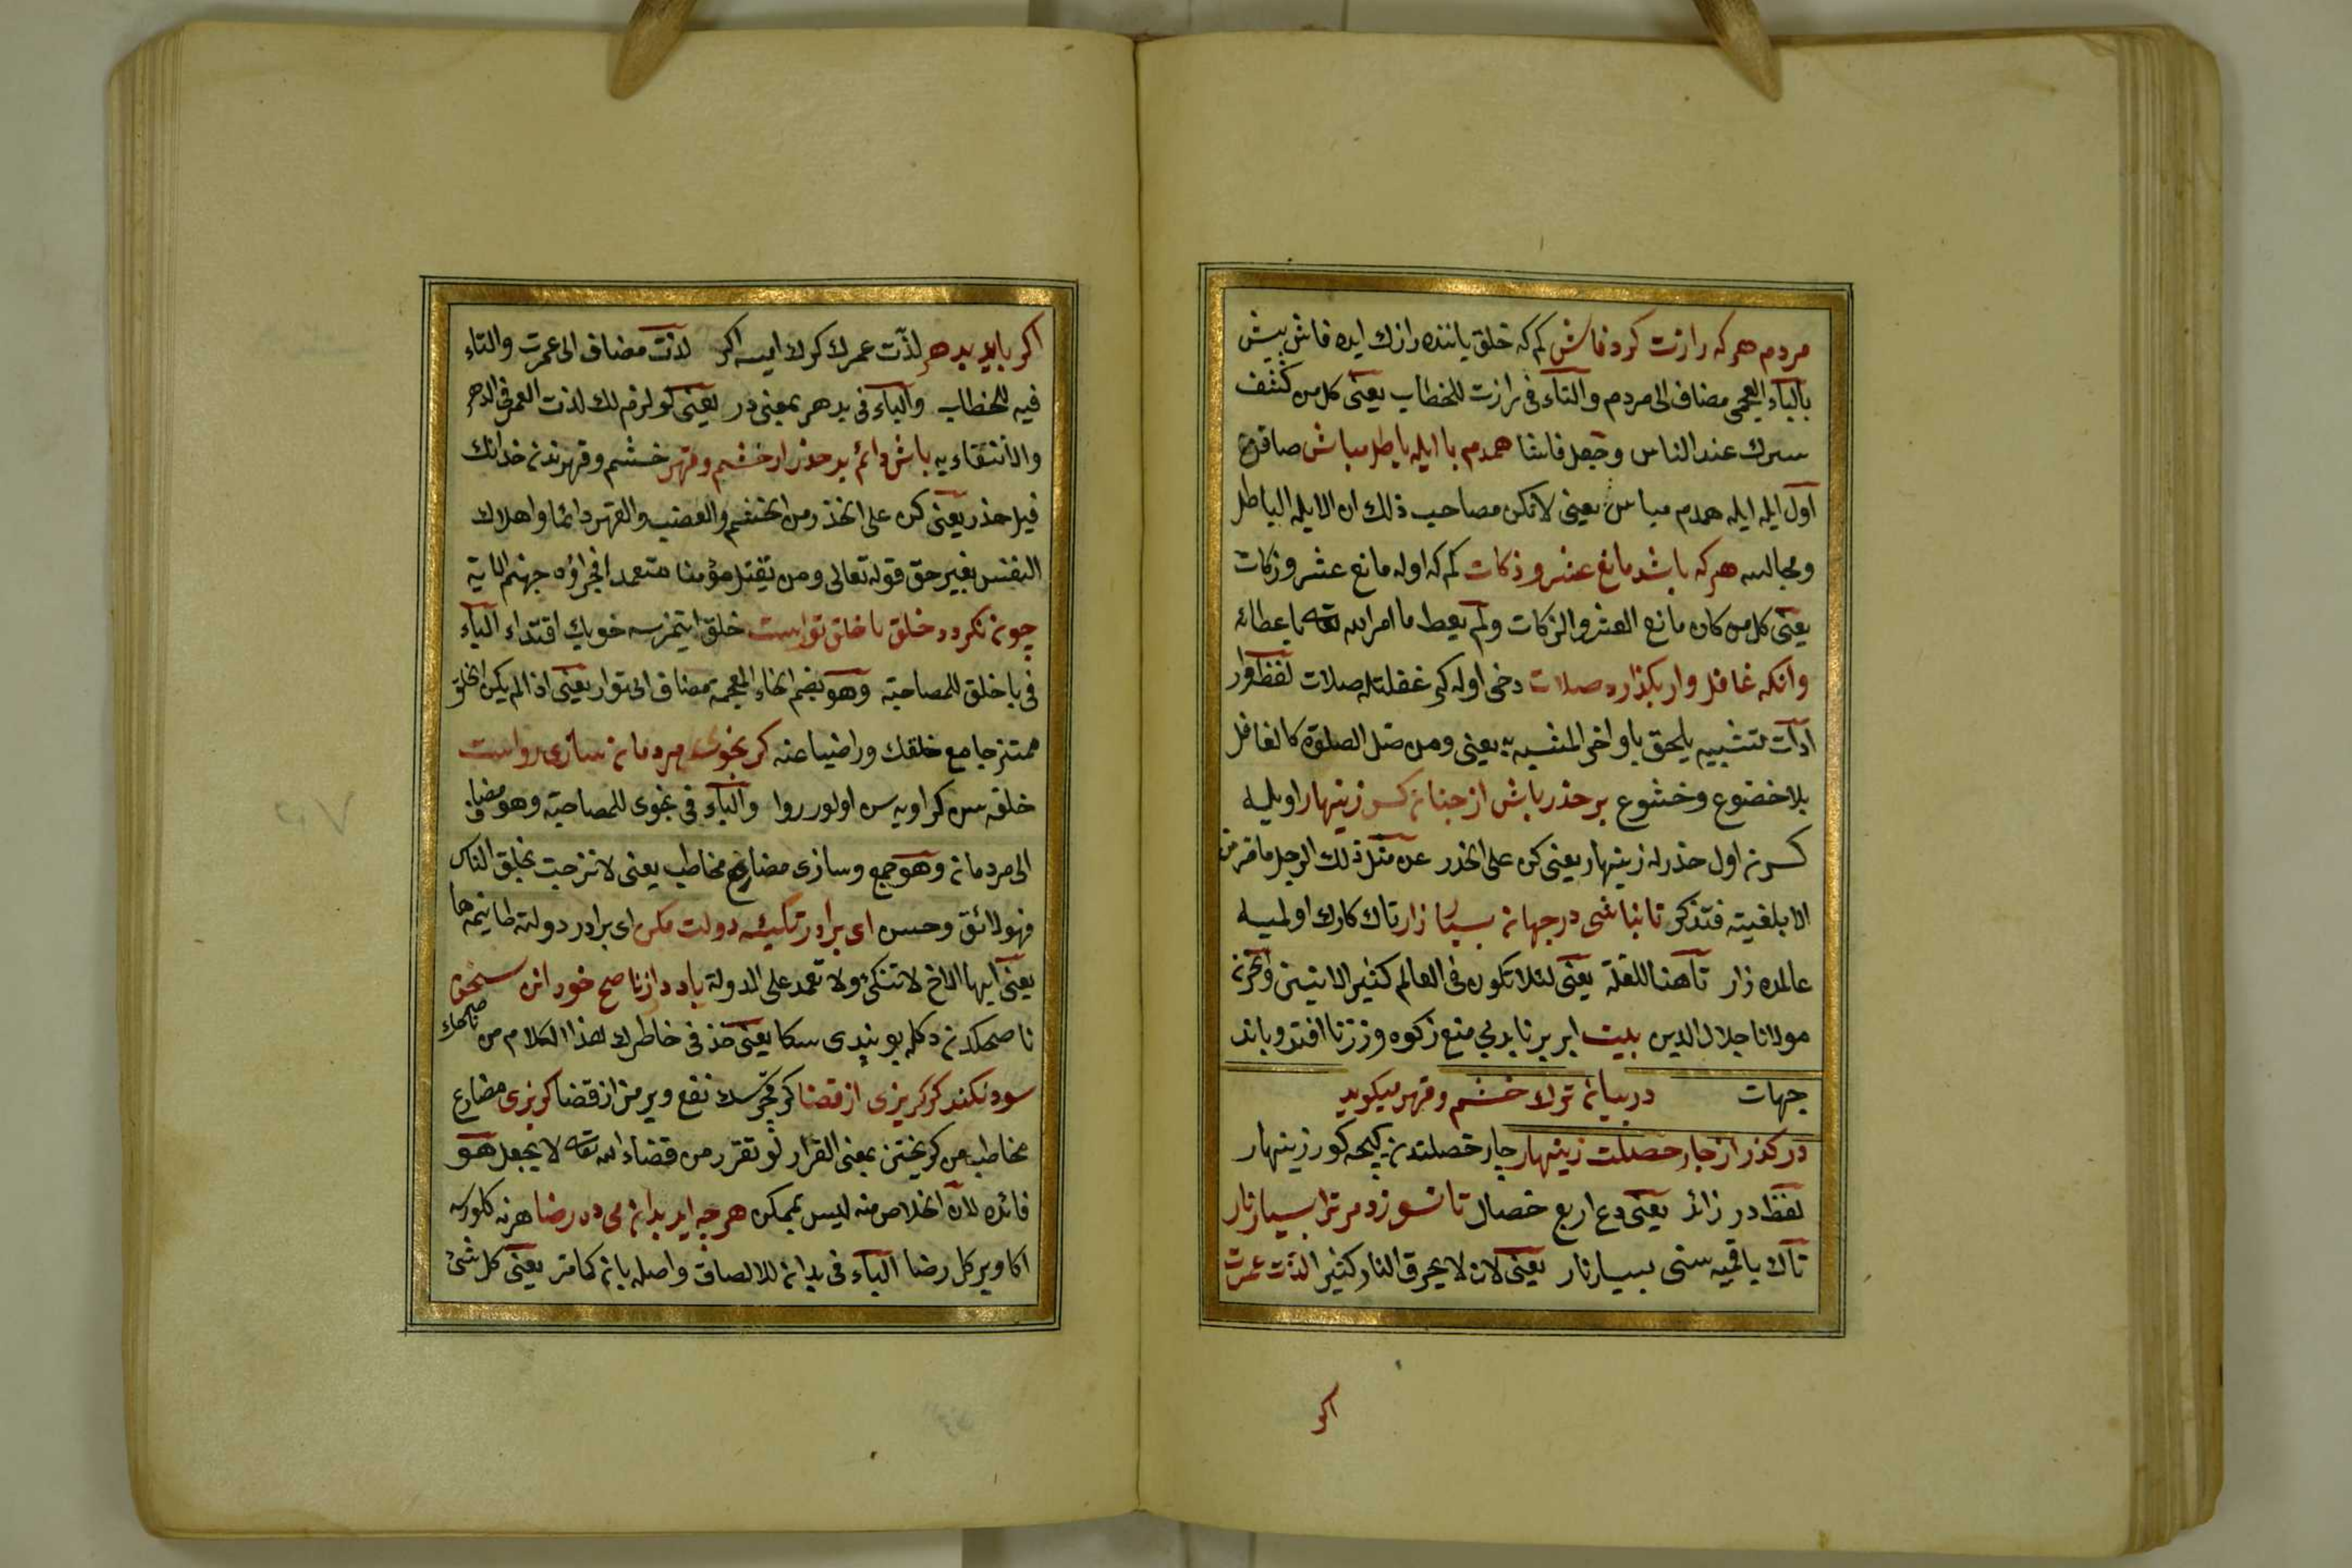 مردم هر كه رازت كرد فاش كم كه خلق ياننده رازك ايده فاش پيش
بالباء العجمى مضاف الى مردم والتاء فى رازت للخطاب يعنى كل من كشف
سرك عند الناس وجعل فاشا همدم با ايله باطل مباش صاقن
اول ايله ايله همدم مباش يعنى لا تكن مصاحب ذلك ان الايله الباطل
ومجالسه هر كه باشد مانع عشر و زكات كم كه اوله مانع عشر و زكات
يعنى كل من كان مانع العشر والزكات ولم يعط ما امر الله تعه باعطائه
وانكه غافل وار بكذارد صلات دخى اوله كى غفلتله صلات لفظ وار
ادات تشبيه يلحق باواخر المشبه به يعنى ومن صل الصلوة كالغافل
بلا خضوع وخشوع بر حذر باش از چنان كس زينهار اويله
كسدن اول حذر له زينهار يعنى كن على الحذر عن مثل ذلك الرجل
الا بلغيته فتذكر تا نباشى در جهان بسيار زار تاك كارك اولميه
عالمده زار تا هنا للعلة يعنى لئلا تكون فى العالم كثير الانين
مولانا جلال الدين بيت ابر برنايد پى منع زكوه وز زنا افتد وبا اندر
جهات در بيان ترك خشم وقهر ميكويد
در كذر از چار خصلت زينهار چار خصلتدن كچه كور زينهار
لفظ در زائد يعنى دع اربع خصال تا نسوزد مر ترا بسيار نار
تاك ياقميه سنى بسيار نار يعنى لان لا يحرق النار كثيرا لذت عمرت
اكر
اكر بايد بدهر لذت عمرك كرك ايسه اكر لذت مضاف الى عمرت والتاء
فيه للخطاب والباء فى بدهر بمعنى در يعنى لو لزم لك لذت العمر فى الدهر
والانتفاء به باش دائم بر حذر از خشم وقهر خشم وقهرندن خدانك
قيل حذر يعنى كن على الحذر من الخشم والغضب والقهر دائما واهلاك
النفس بغير حق قوله تعالى ومن يقتل مؤمنا متعمدا فجزاؤه جهنم الاية
چون نكردد خلق با خلق تو راست خلق ايتمزسه خويك اقتداء الباء
فى با خلق للمصاحبة وهو بضم الخاء المعجمة مضاف الى تو اى يعنى اذا لم يكن الخلق
ممتزجا مع خلقك وراضيا عنه كر بخوى مردمان سازى رواست
خلقه سن كر اويه سن اولور روا والباء فى بخوى للمصاحبة وهو مضاف
الى مردمان وهو جمع وسازى مضارع مخاطب يعنى لا تزجت بخلق الناس
فهو لائق وحسن اى برادر تكيه دولت مكن اى برادر دولته طاينمه ها
يعنى ايها الاخ لا تتكئ ولا تعمد على الدولة ياد دار از ناصح خود اين سخن
ناصحكدن دكله بو پندى سكا يعنى خذ فى خاطرك هذا الكلام من ناصحك
سود نكند كر كريزى از قضا كر قچرسك نفع ويرمز از قضا كريزى مضارع
مخاطب من كريختن بمعنى الفرار لو تفرر من قضاء الله تعه لا يجعل هو
فائده لان الخلاص منه ليس بممكن هر چه ايد بدان مى ده رضا هر نه كلورسه
اكا وير كل رضا الباء فى بدان للالصاق واصله بان كما مر يعنى كل شئ